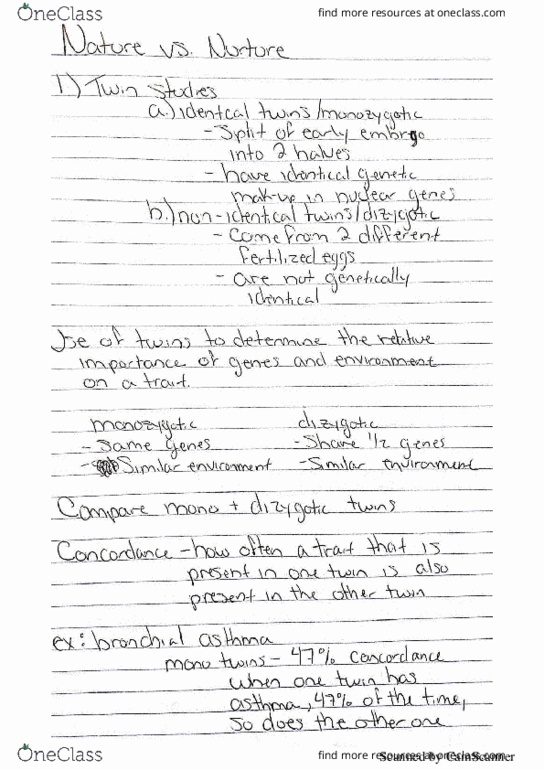 OneClass
find more resources at oneclass.com
Nature vs. Nurture
1) Twin Studies
a.) identcal twins/monozygotic
- Split of early embrgo
into 2 halves
- have identical genetic
make-up in nuclear genes
b.) non-identical twins/dizygotic
- Come from 2 different
fertilized eggs
- are not genetically
identical
Use of twins to determine the relative
importance of genes and environment
on a trait.
monozygotic dizygotic
- Same genes - Share 1/2 genes
- Similar environment - Similar environment
Compare mono + dizygotic twins
Concordance - how often a trait that is
present in one twin is also
present in the other twin
ex: bronchial asthma
mono twins - 47% concordance
when one twin has
asthma, 47% of the time,
so does the other one
OneClass
find more resources at oneclass.com
Scanned by CamScanner